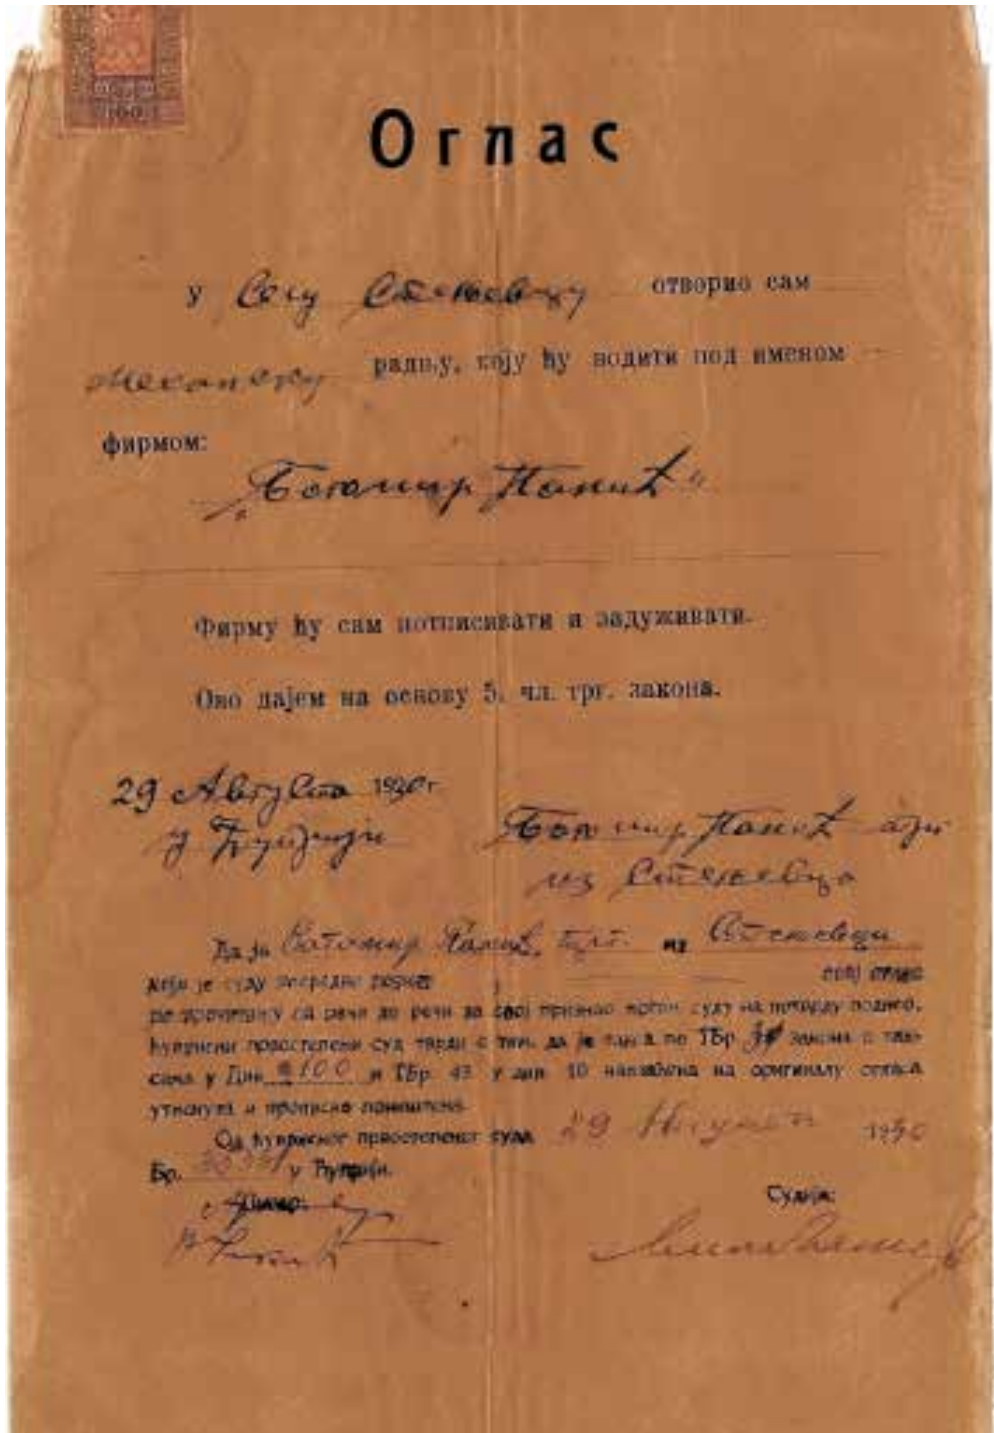 100
Оглас
у Селу Стењевцу отворио сам
Механску радњу, коју ћу водити под именом
фирмом:
„Богомир Панић"
Фирму ћу сам потписивати и задуживати.
Ово дајем на основу 5. чл. трг. закона.
29 Августа 1930 г.
у Ћуприји
Богомир Панић
из Стењевца
Да је Богомир Панић, трг. из Стењевца
који је суду посредно познат
по прочитању од речи до речи за свој признао потом суду на потврду поднео,
ћуприски првостепени суд тврди с тим, да је такса по ТБр. закона о так-
сама у Дин. 100 и ТБр. 43 у дин. 10 наплаћена на оригиналу огласа
и прописно поништена.
Од ћуприског првостепеног суда 29 Августа 1930
Бр. у Ћуприји.
Судија: